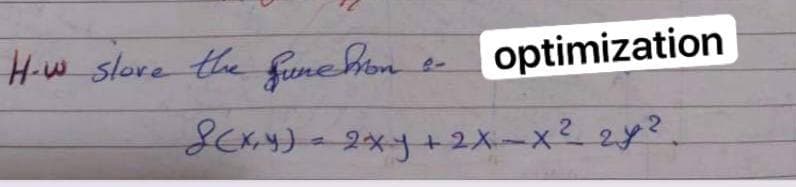 H.w slove the function :- optimization
f(x,y) = 2xy + 2x - x² - 2y².